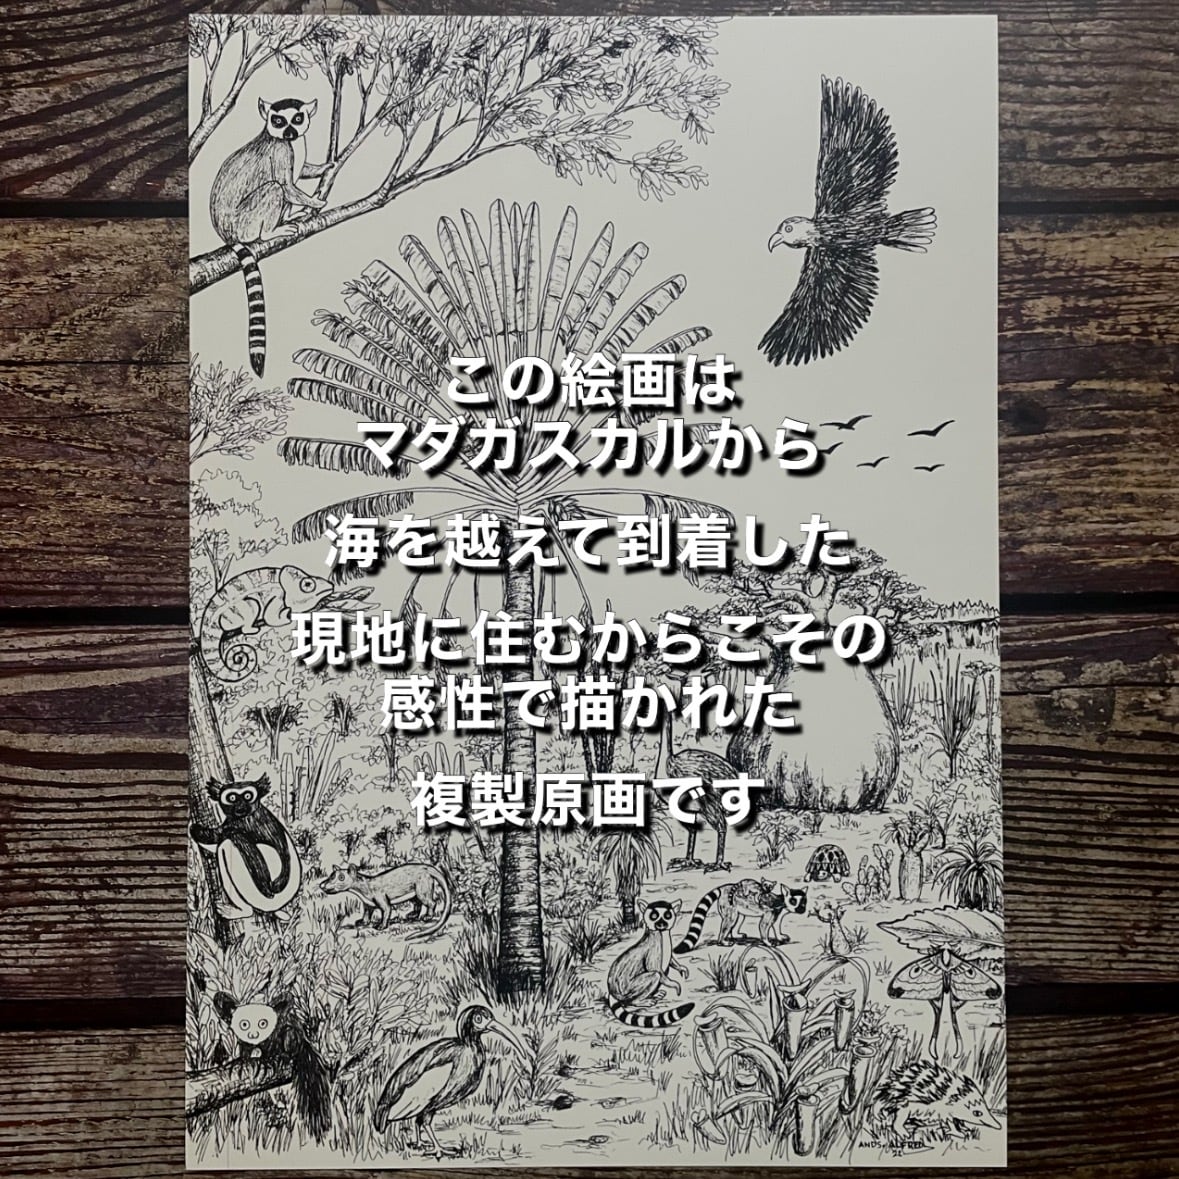 この絵画は
マダガスカルから
海を越えて到着した
現地に住むからこその
感性で描かれた
複製原画です
ANDS. ALFRED